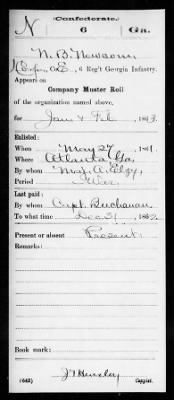 Confederate.
N 6 Ga.
N. B. Newsom
Co. E, 6 Reg't Georgia Infantry.
Appears on
Company Muster Roll
of the organization named above,
for Jan & Feb, 1863.
Enlisted:
When May 27, 1861.
Where Atlanta Ga.
By whom Maj. A. Elzy,
Period War
Last paid:
By whom Capt. Buchanan
To what time Dec 31, 1862.
Present or absent Present.
Remarks:
Book mark:
(642) Copyist.